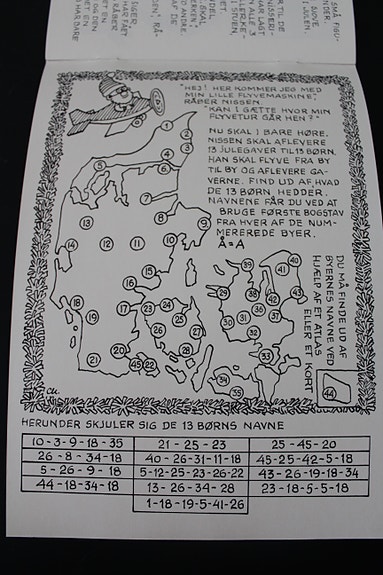 "HEJ! HER KOMMER JEG MED
MIN LILLE FLYVEMASKINE",
RÅBER NISSEN.
"KAN I GÆTTE HVOR MIN
FLYVETUR GÅR HEN?"
NU SKAL I BARE HØRE.
NISSEN SKAL AFLEVERE
13 JULEGAVER TIL 13 BØRN.
HAN SKAL FLYVE FRA BY
TIL BY OG AFLEVERE GA-
VERNE. FIND UD AF HVAD
DE 13 BØRN HEDDER.
NAVNENE FÅR DU VED AT
BRUGE FØRSTE BOGSTAV
FRA HVER AF DE NUM-
MEREREDE BYER.
Å=A
DU MÅ FINDE UD AF
BYERNES NAVNE VED
HJÆLP AF ET ATLAS
ELLER ET KORT
1
2
4
3
5
7
6
8
13
9
14
12
11
10
16
39
41
40
15
38
42
43
18
19
17
23
24
37
36
25
26
30
31
32
27
21
20
45
22
28
33
34
35
44
HERUNDER SKJULER SIG DE 13 BØRNS NAVNE
10-3-9-18-35
21-25-23
25-45-20
26-8-34-18
40-26-31-11-18
45-25-42-5-18
5-26-9-18
5-12-25-23-26-22
43-26-19-18-34
44-18-34-18
13-26-34-28
23-18-5-5-18
1-18-19-5-41-26